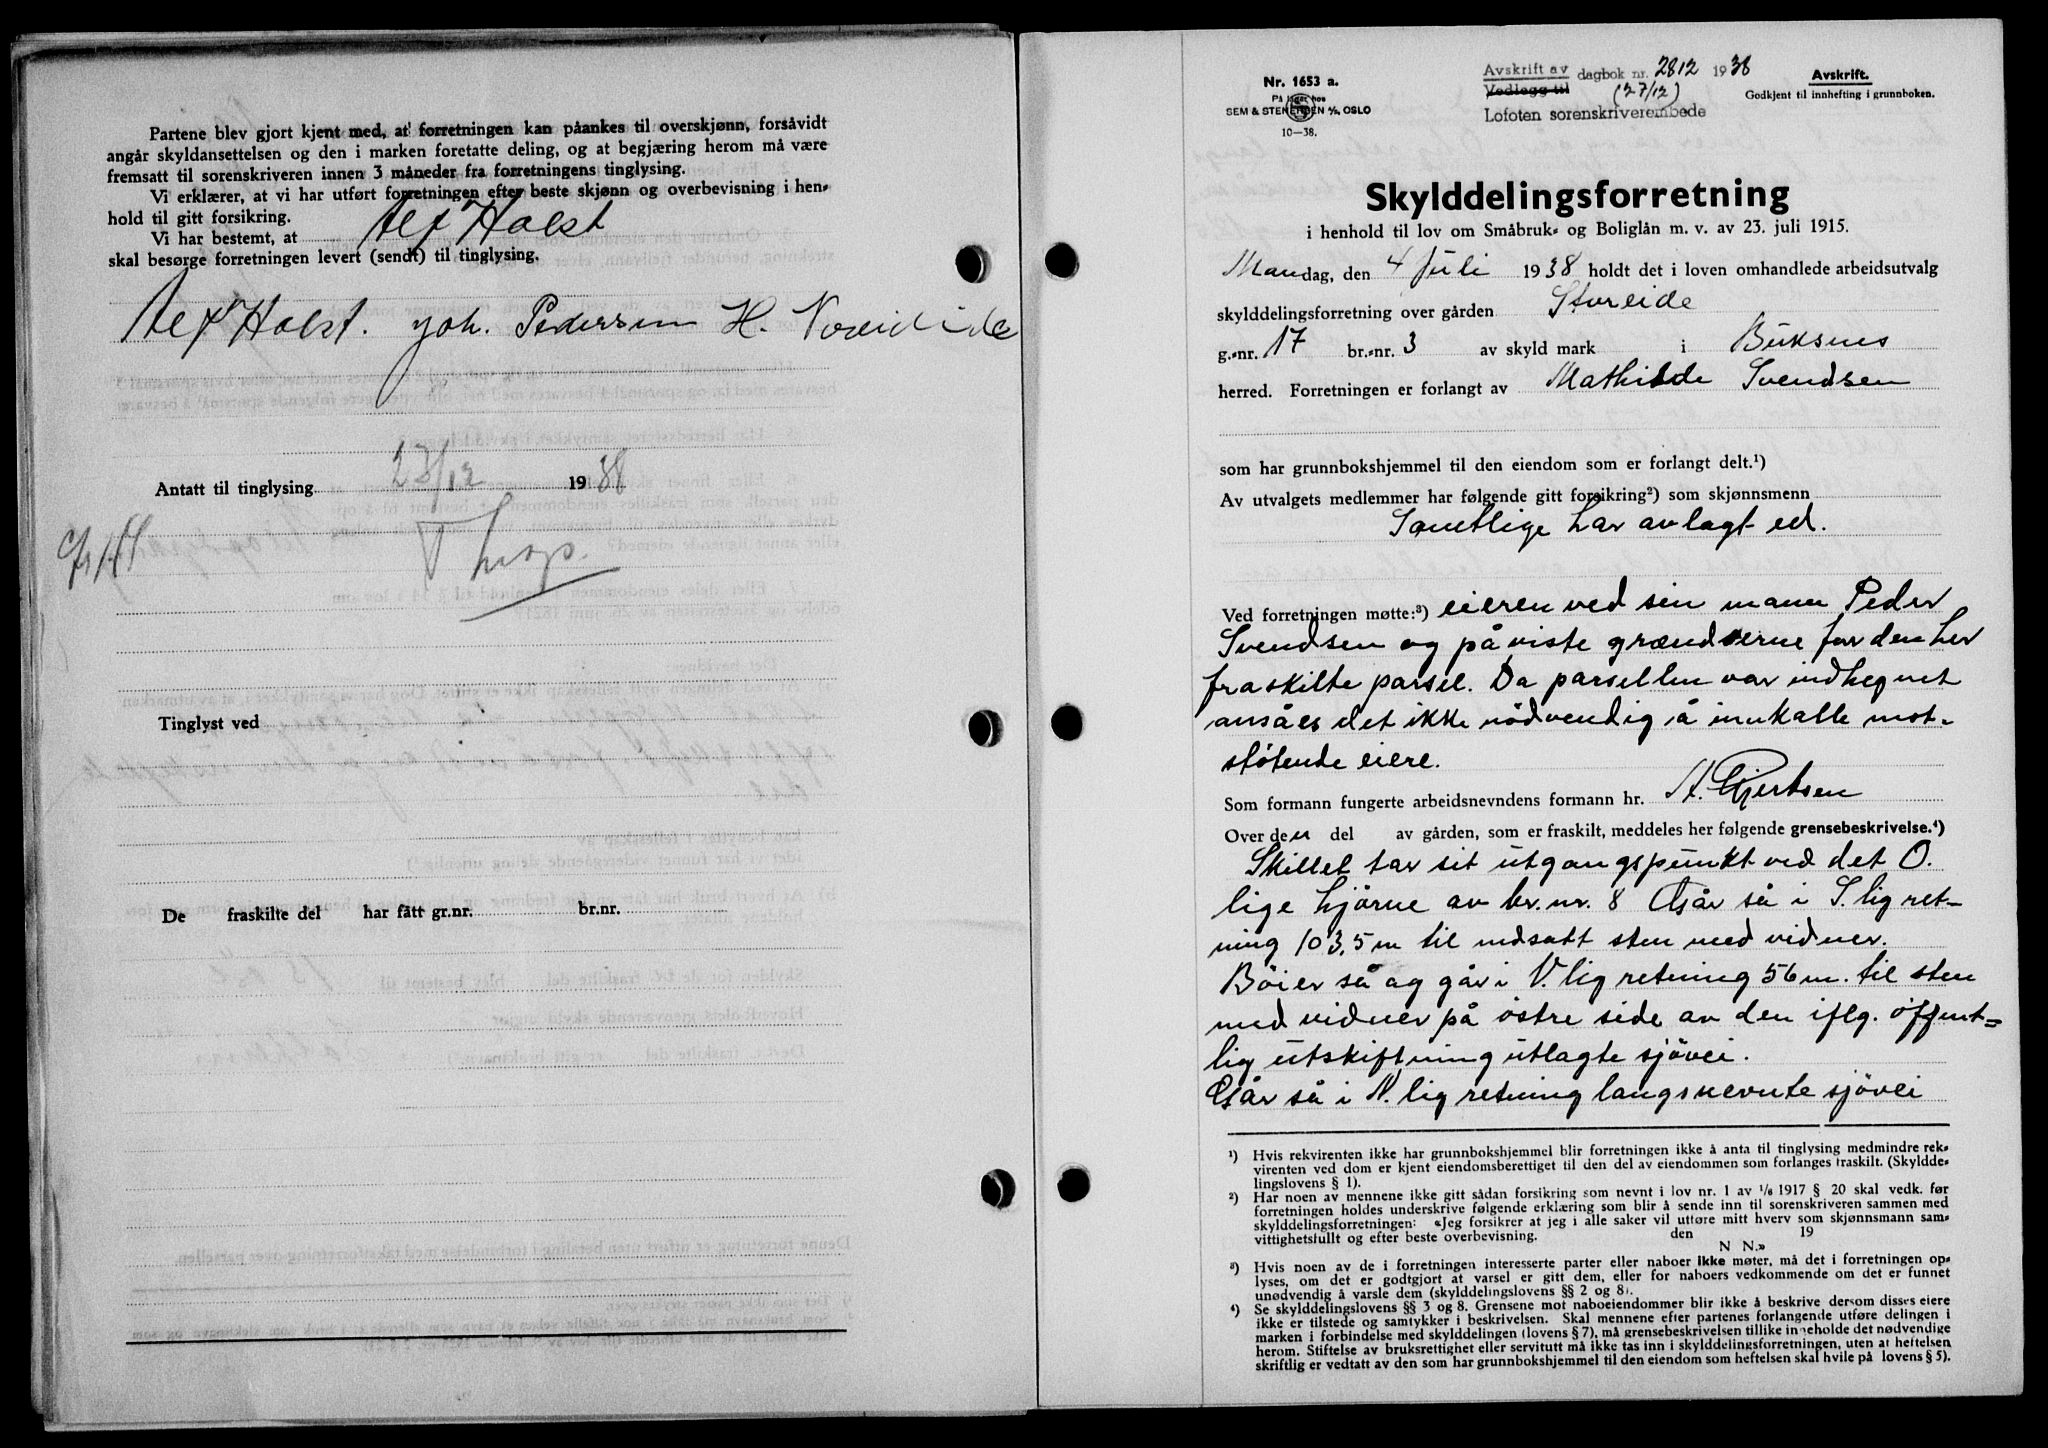 Partene blev gjort kjent med, at forretningen kan påankes til overskjønn, forsåvidt
angår skyldansettelsen og den i marken foretatte deling, og at begjæring herom må være
fremsatt til sorenskriveren innen 3 måneder fra forretningens tinglysing.
Vi erklærer, at vi har utført forretningen efter beste skjønn og overbevisning i hen-
hold til gitt forsikring.
Vi har bestemt, at Alf Holst
skal besørge forretningen levert (sendt) til tinglysing.
Alf Holst. Joh. Pedersen H.
Antatt til tinglysing 23/12 1938
Tinglyst ved
De fraskilte del har fått gr.nr. br.nr.
Nr. 1653 a.
På lager hos
SEM & STENERSEN A/S, OSLO
10—38.
Avskrift av
Vedlegg til
dagbok nr. 2812 1938
(27/12)
Lofoten sorenskriverembede
Avskrift.
Godkjent til innhefting i grunnboken.
Skylddelingsforretning
i henhold til lov om Småbruk- og Boliglån m. v. av 23. juli 1915.
Mandag, den 4 Juli 1938 holdt det i loven omhandlede arbeidsutvalg
skylddelingsforretning over gården Storeide
g.-nr. 17 br.-nr. 3 av skyld mark i Buksnes
herred. Forretningen er forlangt av Mathilde Svendsen
som har grunnbokshjemmel til den eiendom som er forlangt delt.¹)
Av utvalgets medlemmer har følgende gitt forsikring²) som skjønnsmenn
Samtlige har avlagt ed.
Ved forretningen møtte:³) eieren ved sin mann Peder
Svendsen og påviste grændserne for den her
fraskilte parsel. Da parsellen var indhegnet
ansåes det ikke nödvendig å innkalle mot-
stötende eiere.
Som formann fungerte arbeidsnevndens formann hr. A. Gjertsen
Over den del av gården, som er fraskilt, meddeles her følgende grensebeskrivelse.⁴)
Skillet tar sit utgangspunkt ved det O.
lige hjörne av br.nr. 8 Går så i S.lig ret-
ning 103,5 m til nedsatt sten med vidner.
Böier så og går i V.lig retning 56 m. til sten
med vidner på östre side av den iflg. offent-
lig utskiftning utlagte sjövei.
Går så i N.lig retning langs nevnte sjövei
¹) Hvis rekvirenten ikke har grunnbokshjemmel blir forretningen ikke å anta til tinglysing medmindre rek-
virenten ved dom er kjent eiendomsberettiget til den del av eiendommen som forlanges fraskilt. (Skyldde-
lingslovens § 1).
²) Har noen av mennene ikke gitt sådan forsikring som nevnt i lov nr. 1 av 1/6 1917 § 20 skal vedk. før
forretningen holdes underskrive følgende erklæring som blir å sende inn til sorenskriveren sammen med
skylddelingsforretningen: «Jeg forsikrer at jeg i alle saker vil utføre mitt hverv som skjønnsmann sam-
vittighetsfullt og efter beste overbevisning. den 19
N N.»
³) Hvis noen av de i forretningen interesserte parter eller naboer ikke møter, må det i forretningen op-
lyses, om det er godtgjort at varsel er gitt dem, eller for naboers vedkommende om det er funnet
unødvendig å varsle dem (skylddelingslovens §§ 2 og 8).
⁴) Se skylddelingslovens §§ 3 og 8. Grensene mot naboeiendommer blir ikke å beskrive dersom disses eiere
ikke er tilstede og samtykker i beskrivelsen. Skal mennene efter partenes forlangende utføre delingen i
marken i forbindelse med skylddelingen (lovens § 7), må grensebeskrivelsen tillike inneholde det nødvendige
herom. Stiftelse av bruksrettighet eller servitutt må ikke tas inn i skylddelingsforretningen, uten at heftelsen
skriftlig er vedtatt av den som har grunnbokshjemmel til den eiendom som heftelsen skal hvile på lovens § 5).